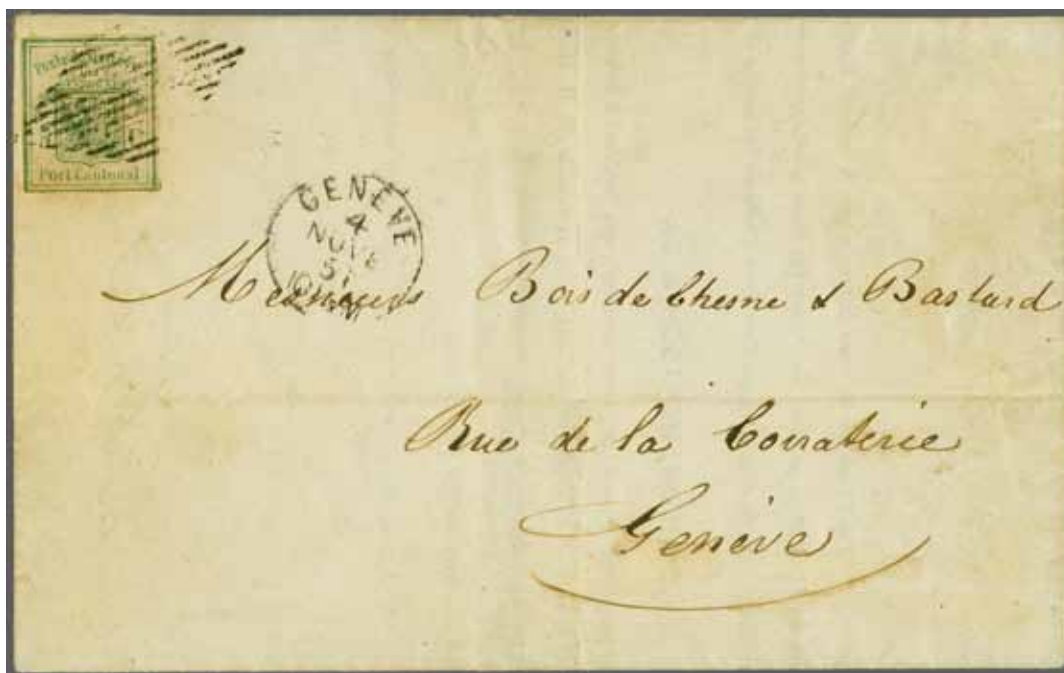 Port Cantonal
GENÈVE
4
NOVE
51
10
M
Messieurs Bois de Chesne & Bastard
Rue de la Corraterie
Genève